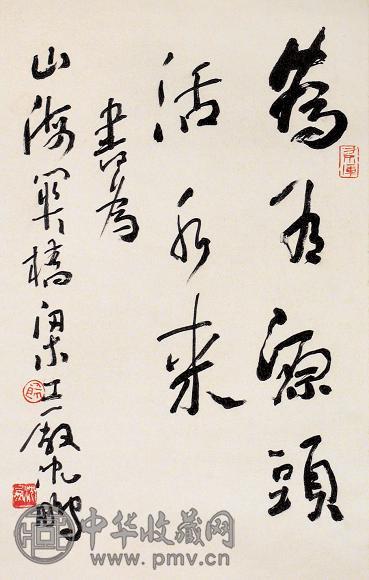 為有源頭
活水来
書為
山海關橋梁工廠沈鵬
中华收藏网
www.pmv.cn